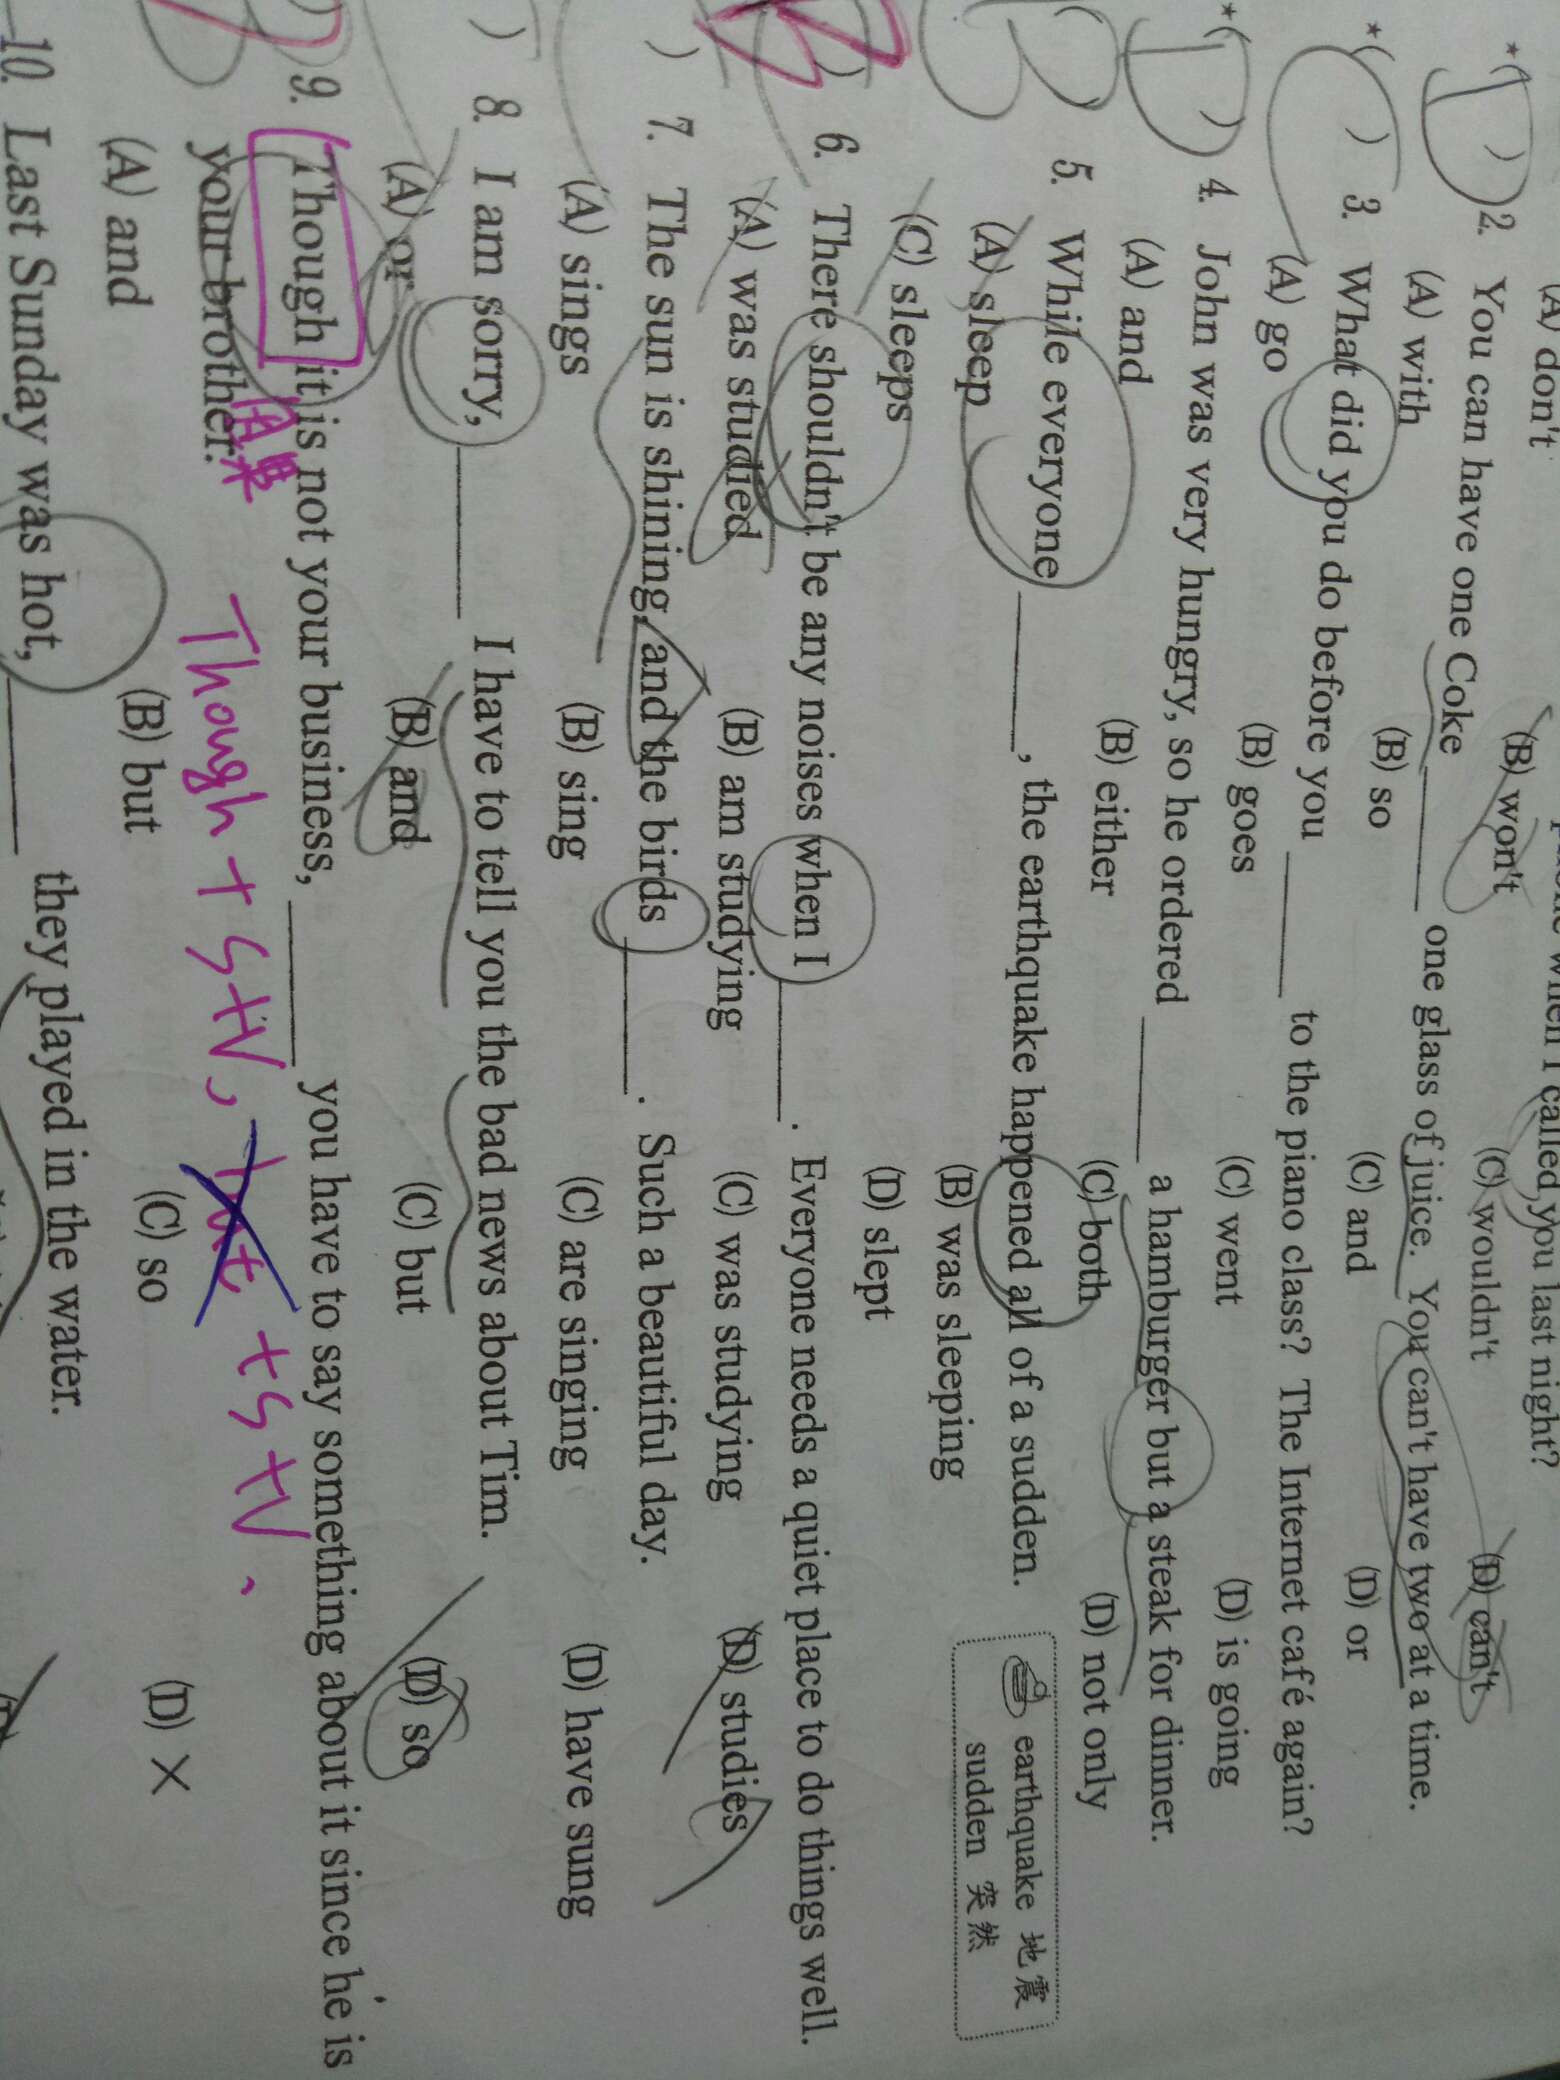 (A) don't (B) won't (C) wouldn't (D) can't
when I called you last night?
*( D ) 2. You can have one Coke ______ one glass of juice. You can't have two at a time.
(A) with (B) so (C) and (D) or
*( ) 3. What did you do before you ______ to the piano class? The Internet café again?
(A) go (B) goes (C) went (D) is going
*( D ) 4. John was very hungry, so he ordered ______ a hamburger but a steak for dinner.
(A) and (B) either (C) both (D) not only
( ) 5. While everyone ______, the earthquake happened all of a sudden.
(A) sleep (B) was sleeping
(C) sleeps (D) slept
earthquake 地震
sudden 突然
) 6. There shouldn't be any noises when I ______. Everyone needs a quiet place to do things well.
(A) was studied (B) am studying (C) was studying (D) studies
) 7. The sun is shining, and the birds ______. Such a beautiful day.
(A) sings (B) sing (C) are singing (D) have sung
) 8. I am sorry, ______ I have to tell you the bad news about Tim.
(A) or (B) and (C) but (D) so
) 9. Though it is not your business, ______ you have to say something about it since he is
your brother.
Though + S+V, but + S+V.
(A) and (B) but (C) so (D) ×
10. Last Sunday was hot, ______ they played in the water.